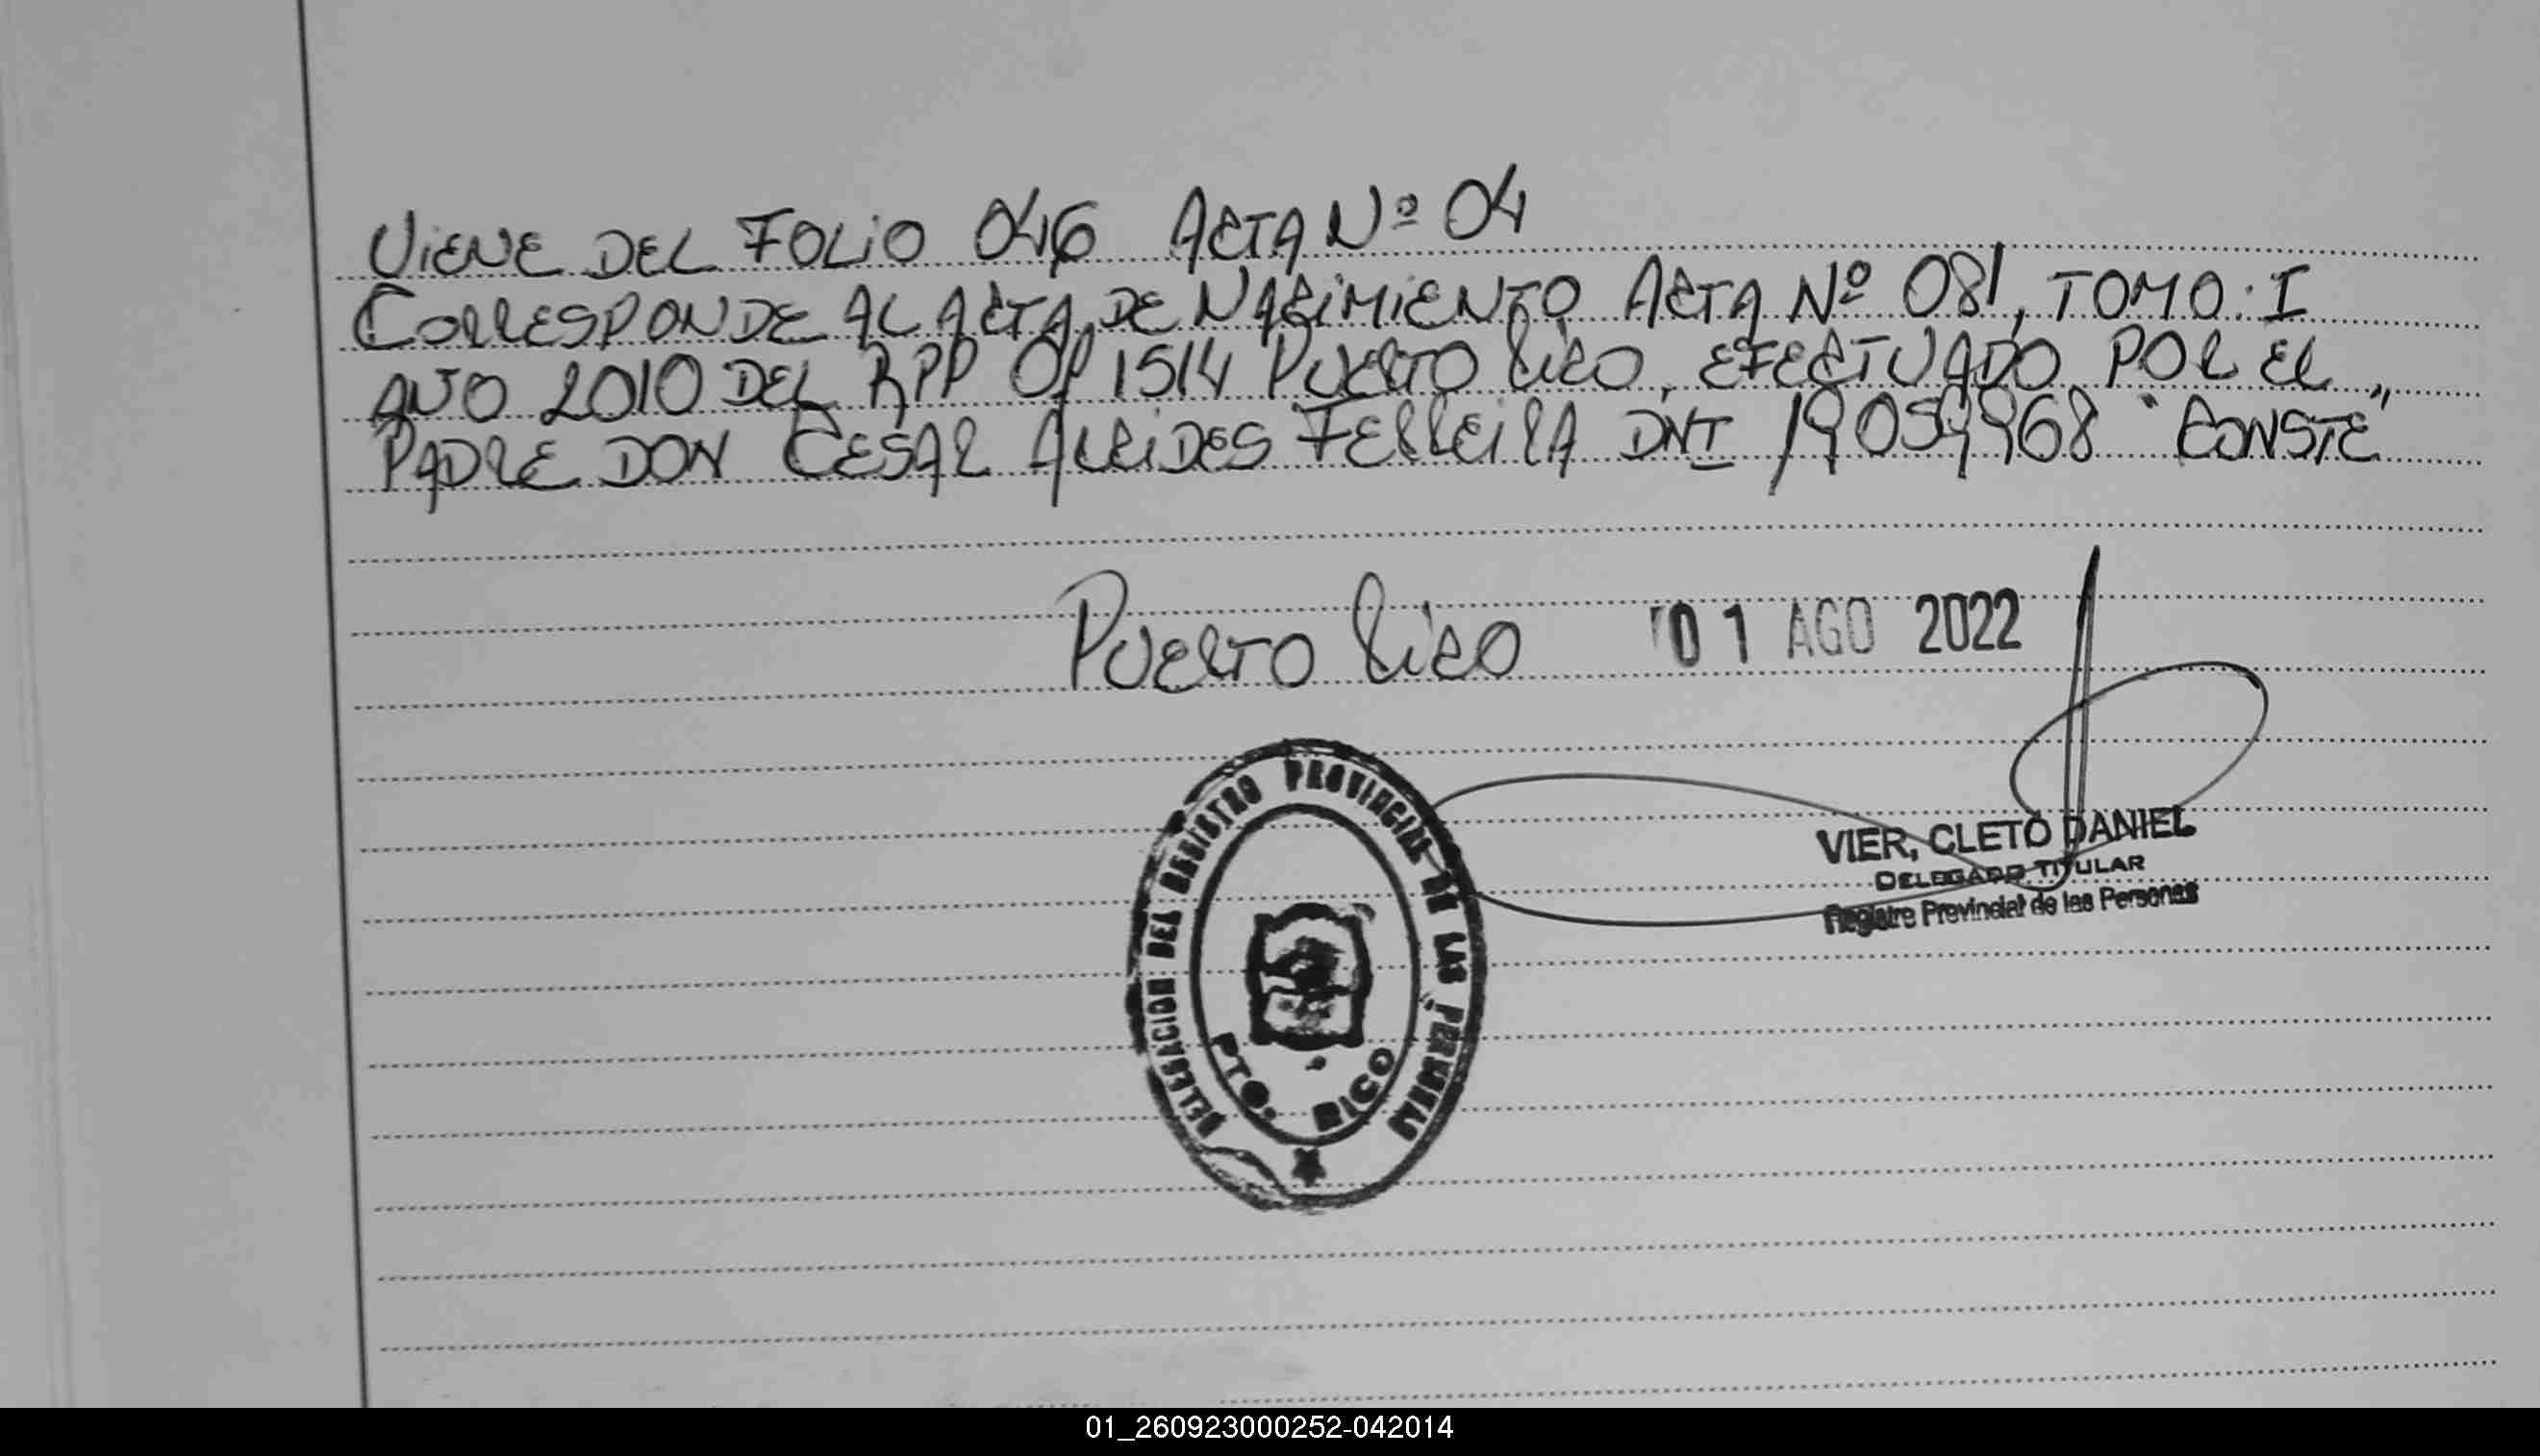 VIENE DEL FOLIO 046 ACTA Nº 04
CORRESPONDE AL ACTA DE NACIMIENTO ACTA Nº 081, TOMO: I
AÑO 2010 DEL RPP OF 1514 PUERTO RICO, EFECTUADO POR EL
PADRE DON CESAR ALCIDES FERREIRA DNI 19059968 "CONSTE"
PUERTO RICO 01 AGO 2022
DELEGACION DEL REGISTRO PROVINCIAL DE LAS PERSONAS
PTO. RICO
VIER, CLETO DANIEL
DELEGADO TITULAR
Registro Provincial de las Personas
01_260923000252-042014